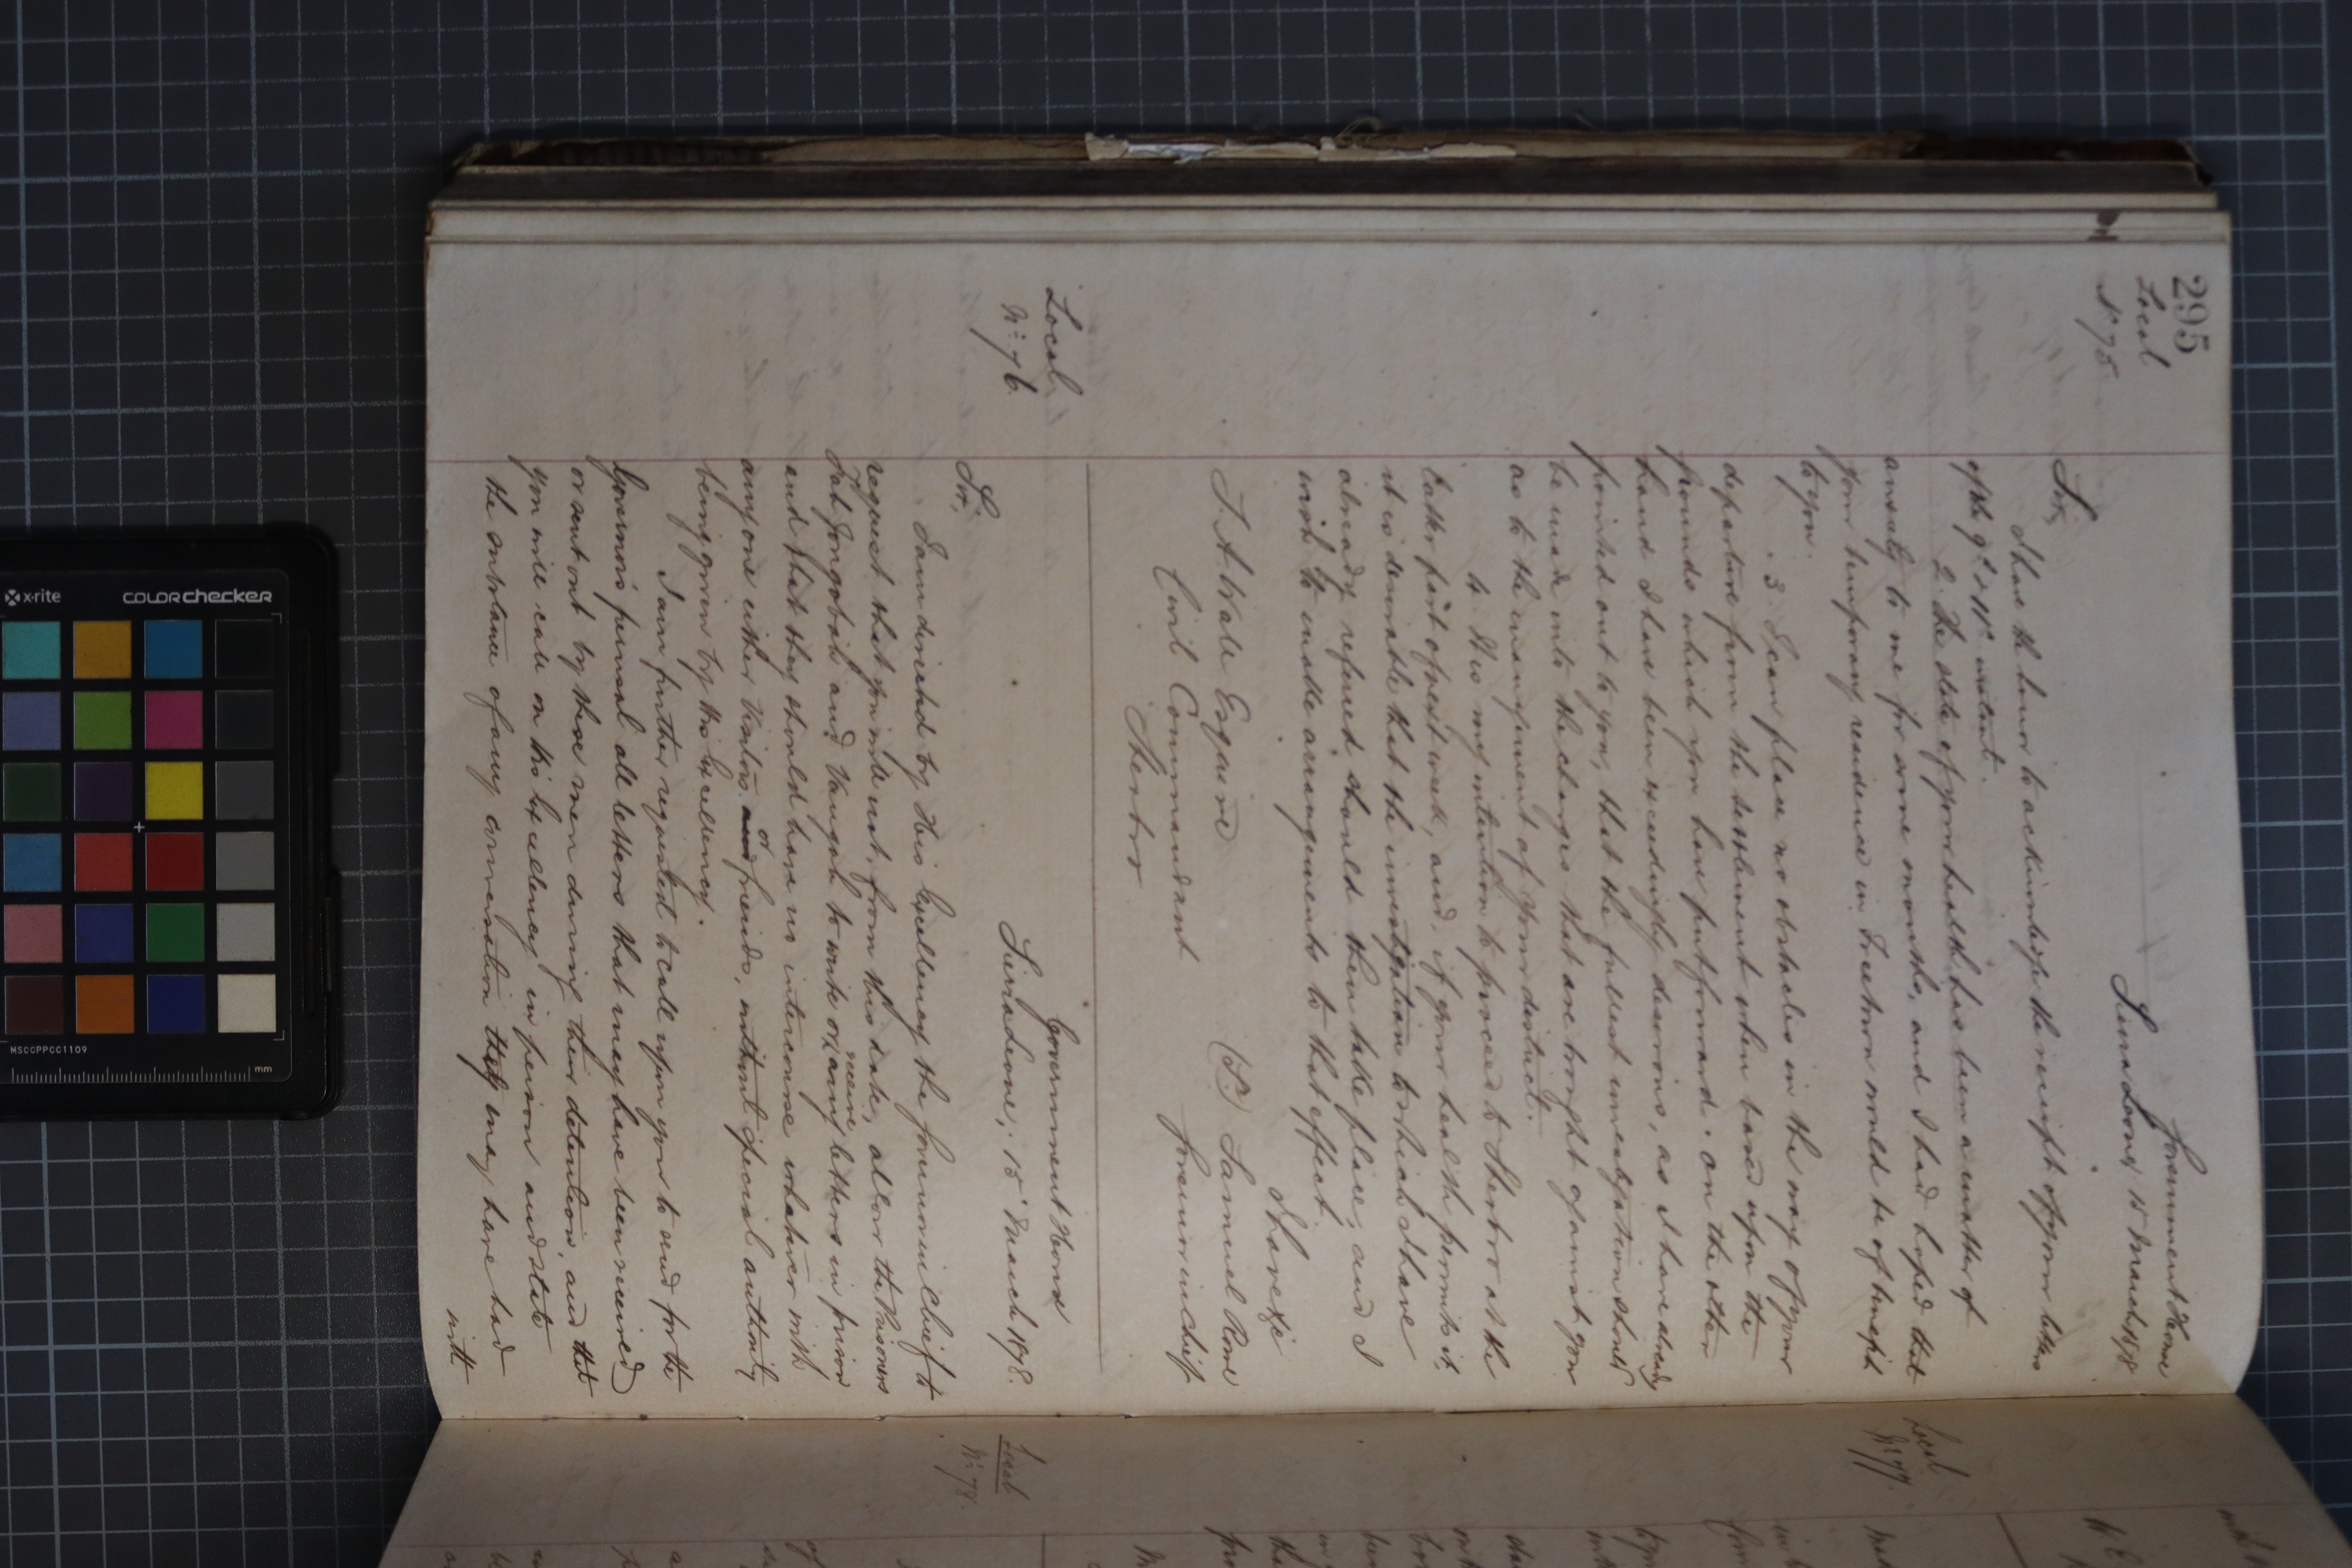 295
Local
No 75
Government House
Sierra Leone, 15 March 1878
Sir,
I have the honor to acknowledge the receipt of your letters
of the 9th & 11th instant.
2. The state of your health has been a matter of
anxiety to me for some months, and I had hoped that
your temporary residence in Freetown would be of benefit
to you.
3. I can place no obstacles in the way of your
departure from the settlement when based upon the
grounds which you have put forward: on the other
hand I have been exceedingly desirous, as I have already
pointed out to you, that the fullest investigation should
be made into the charges that are brought against you
as to the management of your district.
4. It is my intention to proceed to Sherbro at the
latter part of next week, and, if your health permits it,
it is desirable that the investigation to which I have
already referred should then take place; and I
wish to make arrangements to that effect.
I have &c
(Sd.) Samuel Rowe
Governor in Chief
Esquire
Civil Commandant
Sherbro
Local
No 76
Government House
Sierra Leone, 15 March 1878.
Sir,
I am directed by His Excellency the Governor in Chief to
request that you will not, from this date, allow the Prisoners
and Vaughan to write or receive any letters in prison
and that they should have no intercourse whatever with
anyone either Visitors or friends, without special authority
being given by His Excellency.
I am further requested to call upon you to send for the
Governor's perusal all letters that may have been received
or sent out by these men during their detention, and that
you will call on His Excellency in person and state
the substance of any conversation they may have had
with
Local
No 77.
Local
No 78.